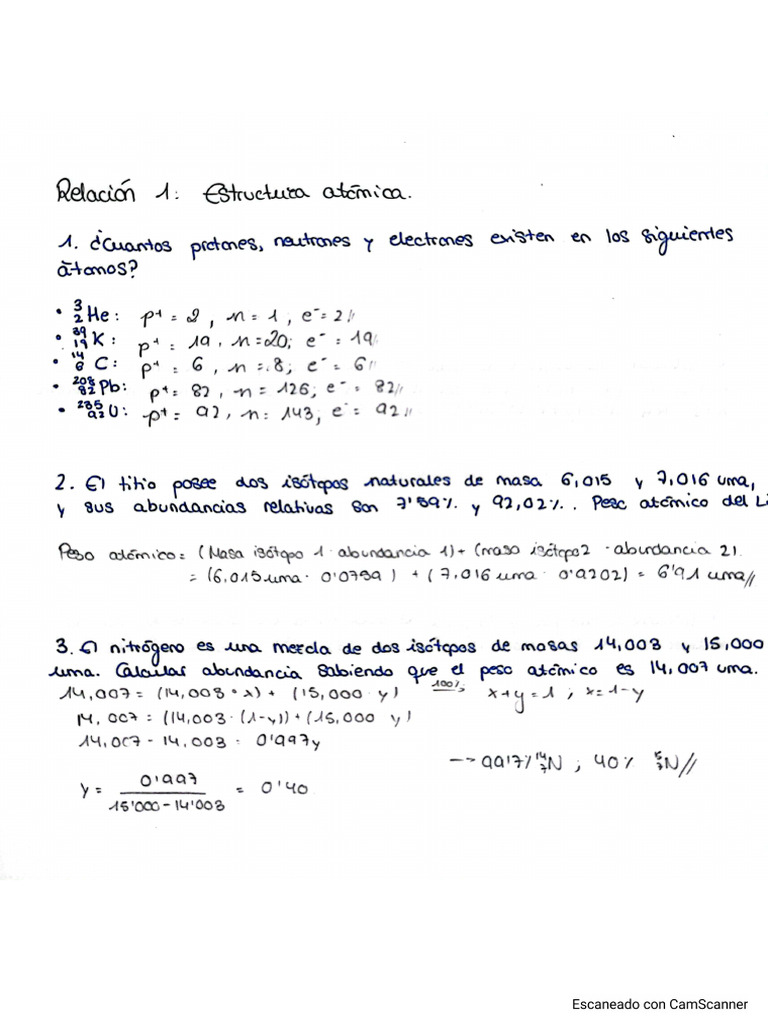 Relación 1: Estructura atómica.
1. ¿Cuantos protones, neutrones y electrones existen en los siguientes
átomos?
• ³₂He: p⁺ = 2, n = 1; e⁻ = 2//
• ³⁹₁₉K: p⁺ = 19, n = 20; e⁻ = 19//
• ¹⁴₆C: p⁺ = 6, n = 8; e⁻ = 6//
• ²⁰⁸₈₂Pb: p⁺ = 82, n = 126; e⁻ = 82//
• ²³⁵₉₂U: p⁺ = 92, n: 143; e⁻ = 92//
2. El titio posee dos isótopos naturales de masa 6,015 y 7,016 uma,
y sus abundancias relativas son 7'59% y 92,02%. Peso atómico del Li
Peso atómico = (Masa isótopo 1 · abundancia 1) + (masa isótopo 2 · abundancia 2).
= (6,015 uma · 0'0759) + (7,016 uma · 0'9202) = 6'91 uma//
3. El nitrógeno es una mezcla de dos isótopos de masas 14,003 y 15,000
uma. Calcular abundancia sabiendo que el peso atómico es 14,007 uma.
14,007 = (14,003 · x) + (15,000 · y) 100% x+y=1; x=1-y
14,007 = (14,003 · (1-y)) + (15,000 y)
14,007 - 14,003 = 0'997y
y = 0'997 / 15'000 - 14'003 = 0'40
--> 99'7% ¹⁴₇N; 40% ¹⁵₇N//
Escaneado con CamScanner